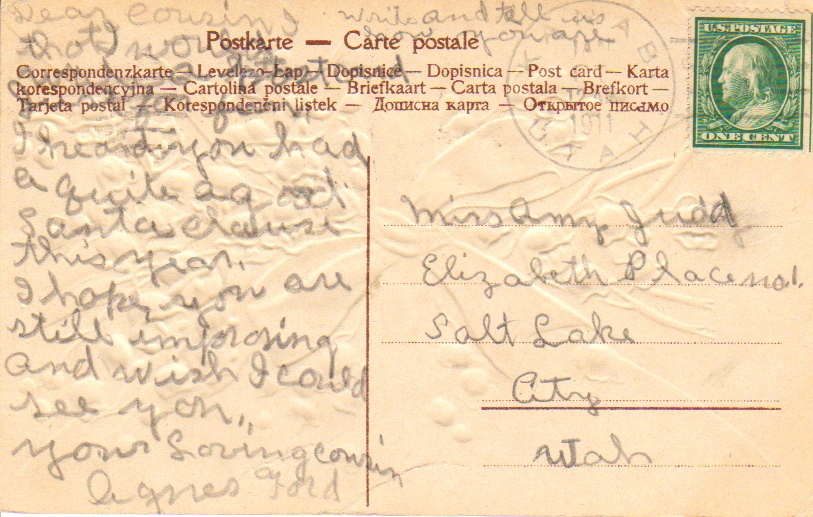 Dear Cousin,
write and tell us
how you are
that would
Postkarte — Carte postale
Correspondenzkarte — Levelezo-Lap — Dopisnice — Dopisnica — Post card — Karta
korespondencyjna — Cartolina postale — Briefkaart — Carta postala — Brefkort —
Tarjeta postal — Korespondenční listek — Дописна карта — Открытое письмо
U.S. POSTAGE
ONE CENT
1911
I heard you had
a quite a good
Santa clause
this year.
I hope you are
still improsing
and wish I could
see you,
your Loving cousin
Agnes Ford
Miss Amy Judd
Elizabeth Place no 1.
Salt Lake
City
Utah